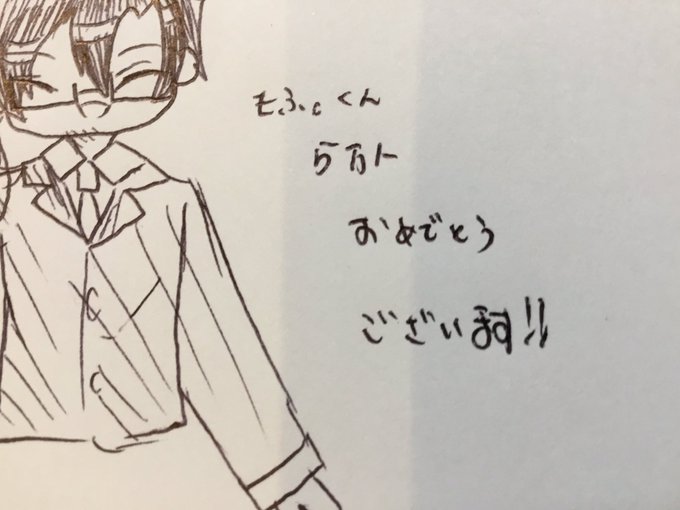 もふ。くん
5万人
おめでとう
ございます!!